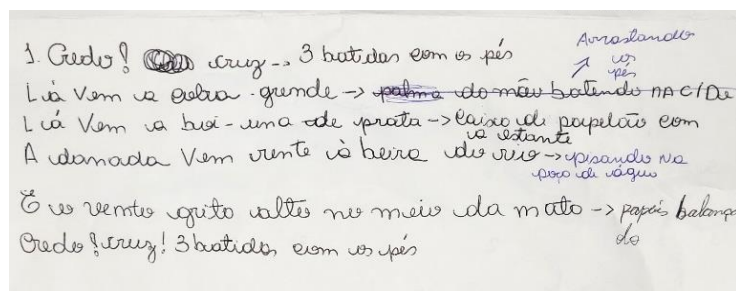 1. Credo! cruz -> 3 batidas com os pés
Arrastando
os
pés
Lá Vem a cobra grande -> palma do mão batendo NA
Lá Vem a boi-una de prata -> Caixa di papelão com
a estante
A danada Vem rente à beira do rio -> pisando na
poço di água
E o vento grito alto no meio da mato -> papéis balança
do
Credo! cruz! 3 batidas com os pés